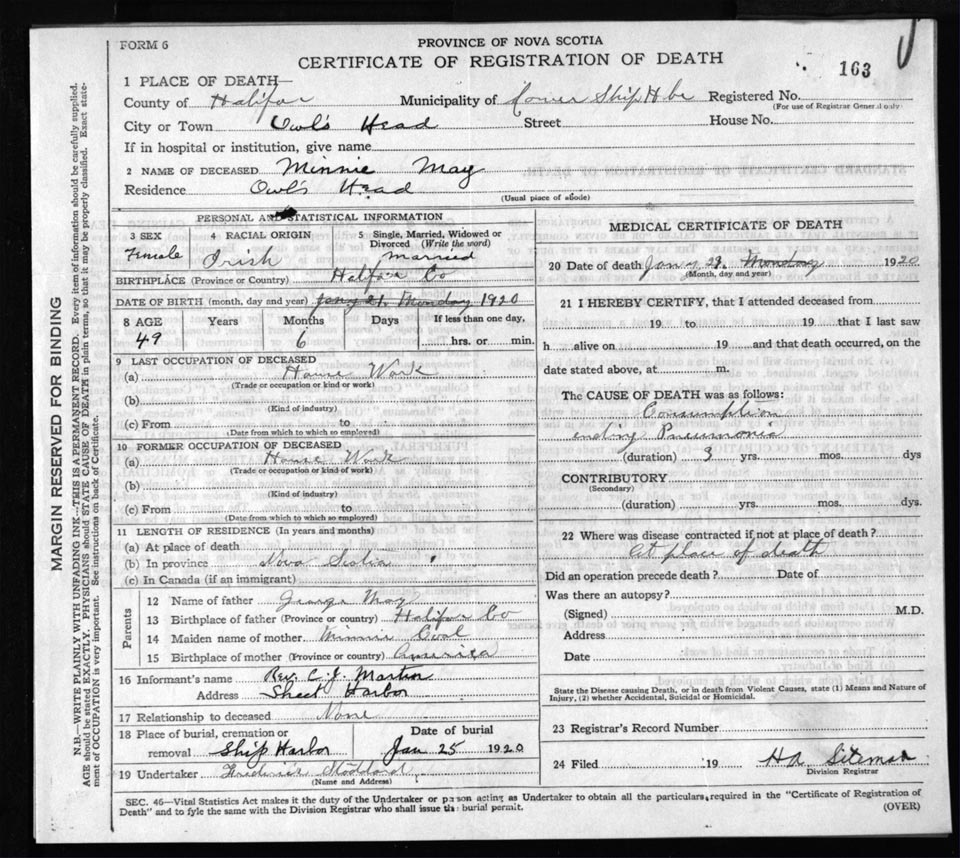 FORM 6
PROVINCE OF NOVA SCOTIA
CERTIFICATE OF REGISTRATION OF DEATH
163
1 PLACE OF DEATH
County of Halifax Municipality of Lower Ship Hbr Registered No.
(For use of Registrar General only)
City or Town Owl's Head Street House No.
If in hospital or institution, give name
2 NAME OF DECEASED Minnie May
Residence Owl's Head
(Usual place of abode)
PERSONAL AND STATISTICAL INFORMATION
3 SEX 4 RACIAL ORIGIN 5 Single, Married, Widowed or Divorced (Write the word)
Female Irish Married
BIRTHPLACE (Province or Country) Halifax Co
DATE OF BIRTH (month, day and year) Jany 21, Monday 1920
8 AGE Years Months Days If less than one day,
49 6 hrs. or min.
9 LAST OCCUPATION OF DECEASED
(a) House Work
(Trade or occupation or kind or work)
(b)
(Kind of industry)
(c) From to
(Date from which to which so employed)
10 FORMER OCCUPATION OF DECEASED
(a) House Work
(Trade or occupation or kind of work)
(b)
(Kind of industry)
(c) From to
(Date from which to which so employed)
11 LENGTH OF RESIDENCE (In years and months)
(a) At place of death
(b) In province Nova Scotia
(c) In Canada (if an immigrant)
Parents
12 Name of father George May
13 Birthplace of father (Province or country) Halifax Co
14 Maiden name of mother Minnie
15 Birthplace of mother (Province or country) America
16 Informant's name Rev. C. J. Martin
Address Sheet Harbor
17 Relationship to deceased None
18 Place of burial, cremation or removal Ship Harbor Date of burial Jan 25 1920
19 Undertaker Frederick Stoddard
(Name and Address)
MEDICAL CERTIFICATE OF DEATH
20 Date of death Jany 21. Monday 1920
(Month, day and year)
21 I HEREBY CERTIFY, that I attended deceased from
19 to 19 that I last saw
h alive on 19 and that death occurred, on the
date stated above, at m.
The CAUSE OF DEATH was as follows:
Consumption
ending Pneumonia
(duration) 3 yrs. mos. dys
CONTRIBUTORY
(Secondary)
(duration) yrs. mos. dys.
22 Where was disease contracted if not at place of death?
At place of death
Did an operation precede death? Date of
Was there an autopsy?
(Signed) M.D.
Address
Date
State the Disease causing Death, or in death from Violent Causes, state (1) Means and Nature of
Injury, (2) whether Accidental, Suicidal or Homicidal.
23 Registrar's Record Number
24 Filed 19 HA Siteman
Division Registrar
SEC. 46—Vital Statistics Act makes it the duty of the Undertaker or person acting as Undertaker to obtain all the particulars required in the "Certificate of Registration of
Death" and to fyle the same with the Division Registrar who shall issue the burial permit.
(OVER)
MARGIN RESERVED FOR BINDING
N.B.—WRITE PLAINLY WITH UNFADING INK—THIS IS A PERMANENT RECORD. Every item of information should be carefully supplied.
AGE should be stated EXACTLY. PHYSICIANS should STATE CAUSE OF DEATH in plain terms, so that it may be properly classified. Exact state-
ment of OCCUPATION is very important. See instructions on back of Certificate.